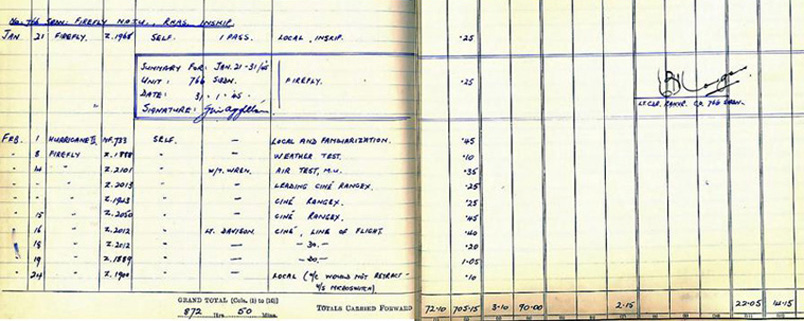 No. 766 SQDN. FIREFLY N.O.T.U., RNAS. INSKIP.
JAN 21 FIREFLY. Z.1965 SELF. 1 PASS. LOCAL, INSKIP. .25
SUMMARY FOR: JAN. 21-31/'45
UNIT: 766 SQDN. FIREFLY. .25
DATE: 31.1.'45.
SIGNATURE:
LT. CDR. RNVR. CO. 766 SQDN.
FEB. 1 HURRICANE II. NF.733 SELF. — LOCAL AND FAMILIARIZATION. .45
" 8 FIREFLY Z.1888 — WEATHER TEST. .10
" 14 " Z.2101 W/T. WREN. AIR TEST, M.U. .35
" " Z.2013 — LEADING CINÉ RANGEX. .25
" " Z.1923 — CINÉ RANGEX. .25
" 15 " Z.2050 — CINÉ RANGEX. .45
" 16 " Z.2012 LT. DAVISON. CINÉ, LINE OF FLIGHT. .40
" 18 " Z.2012 — — DO. — .20
" 19 " Z.1889 — — DO. — 1.05
" 24 " Z.1900 — LOCAL (U/C WOULD NOT RETRACT - .10
U/S MICROSWITCH)
GRAND TOTAL [Cols. (1) to (10)]
872 Hrs. 50 Mins.
TOTALS CARRIED FORWARD 72.10 705.15 3.10 90.00 2.15 22.05 14.15